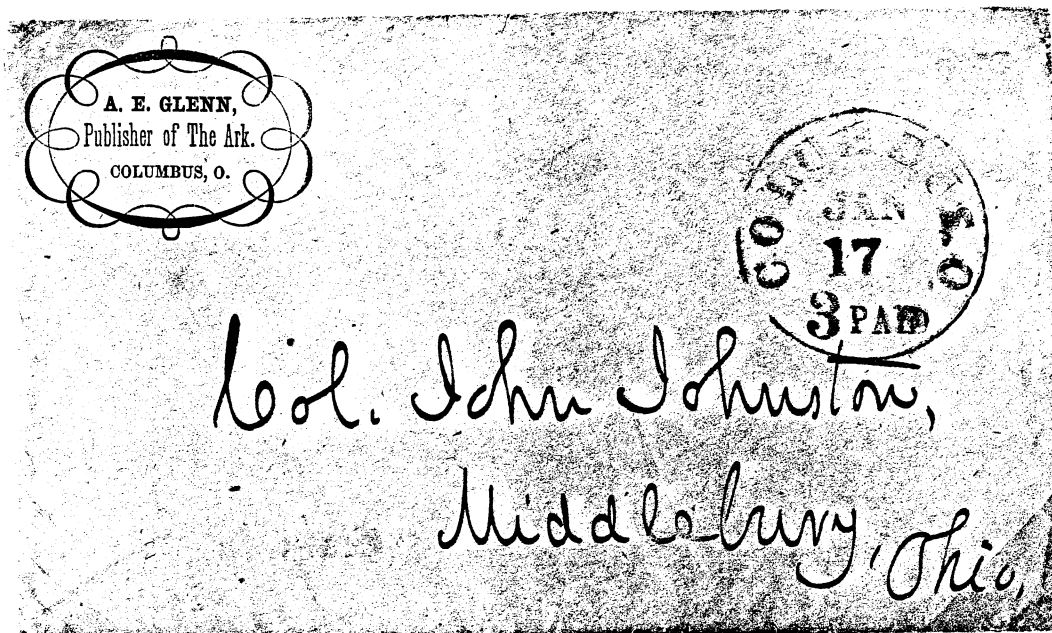 A. E. GLENN,
Publisher of The Ark.
COLUMBUS, O.
COLUMBUS O.
JAN
17
3 PAID
Col. John Johnston,
Middlesbury, Ohio,